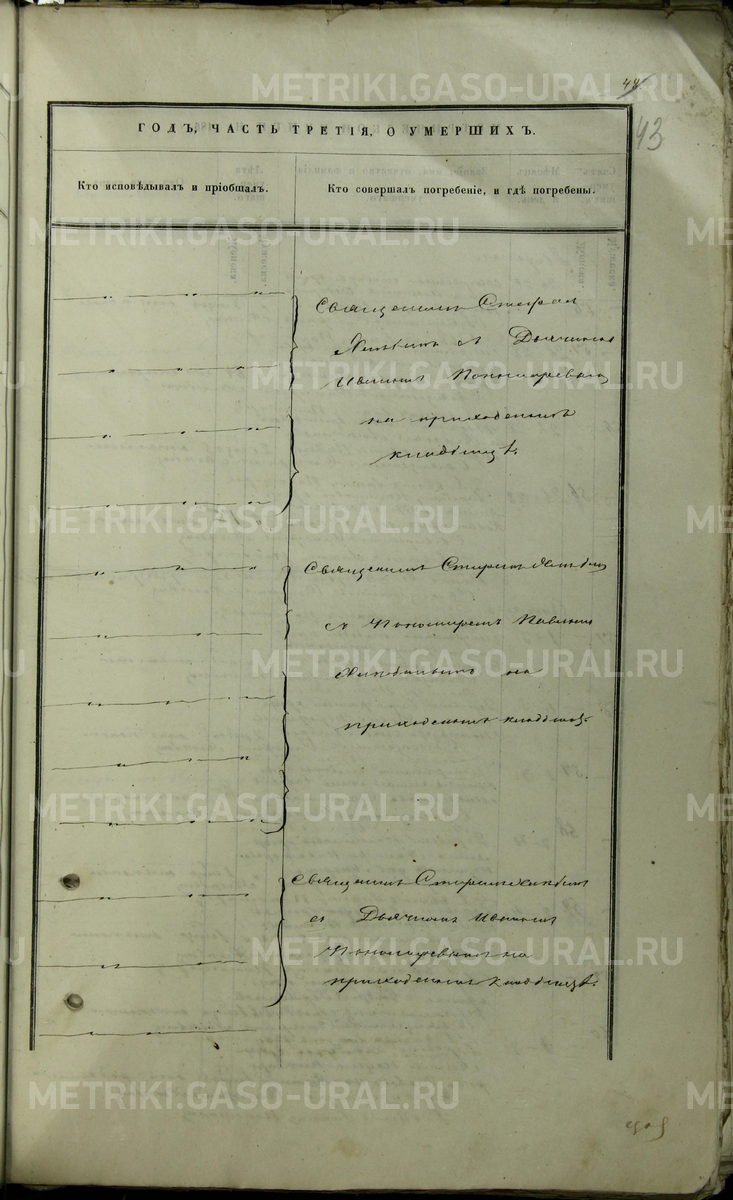 44
43
ГОДЪ, ЧАСТЬ ТРЕТІЯ, О УМЕРШИХЪ.
Кто исповѣдывалъ и пріобщалъ.
Кто совершалъ погребеніе, и гдѣ погребены.
Священникъ Стефан
съ Дьячкомъ
Иваномъ Пономаревымъ
на приходскомъ
кладбищѣ.
Священникъ Стефанъ
съ Пономаремъ Павломъ
на
приходскомъ кладбищѣ
Священникъ Стефанъ
съ Дьячкомъ Иваномъ
Пономаревымъ на
приходскомъ кладбищѣ.
METRIKI.GASO-URAL.RU